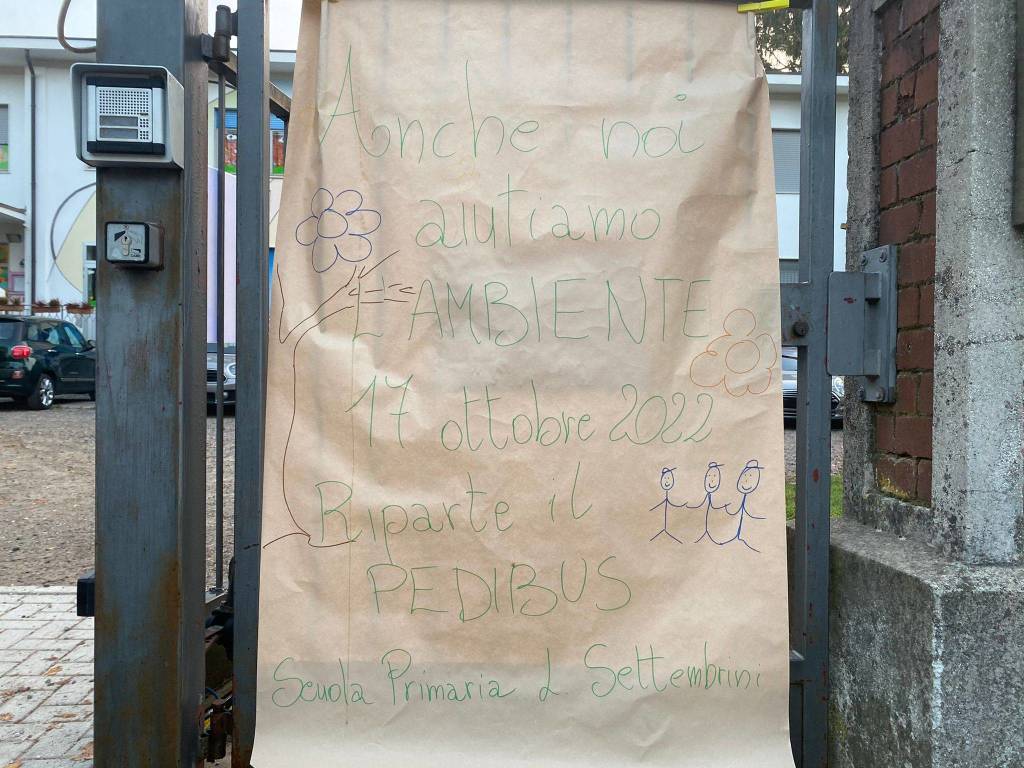 Anche noi
aiutiamo
L'AMBIENTE
17 ottobre 2022
Riparte il
PEDIBUS
Scuola Primaria L Settembrini